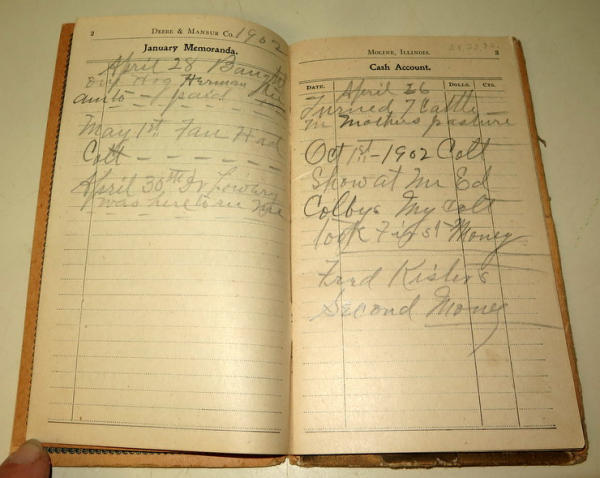 2 DEERE & MANSUR CO. 1902
January Memoranda.
April 28 Baught
one Hog Herman
paid
May 1st Fan Had
Colt
April 30th Dr Lowary
was here to
MOLINE, ILLINOIS. 3
Cash Account.
DATE. DOLLS. CTS.
April 26
Turned 7 Cattle
in Mothers pasture
Oct 1st - 1902 Colt
Show at Mr Ed
Colbys My colt
took First Money
Fred Kisler's
Second Money